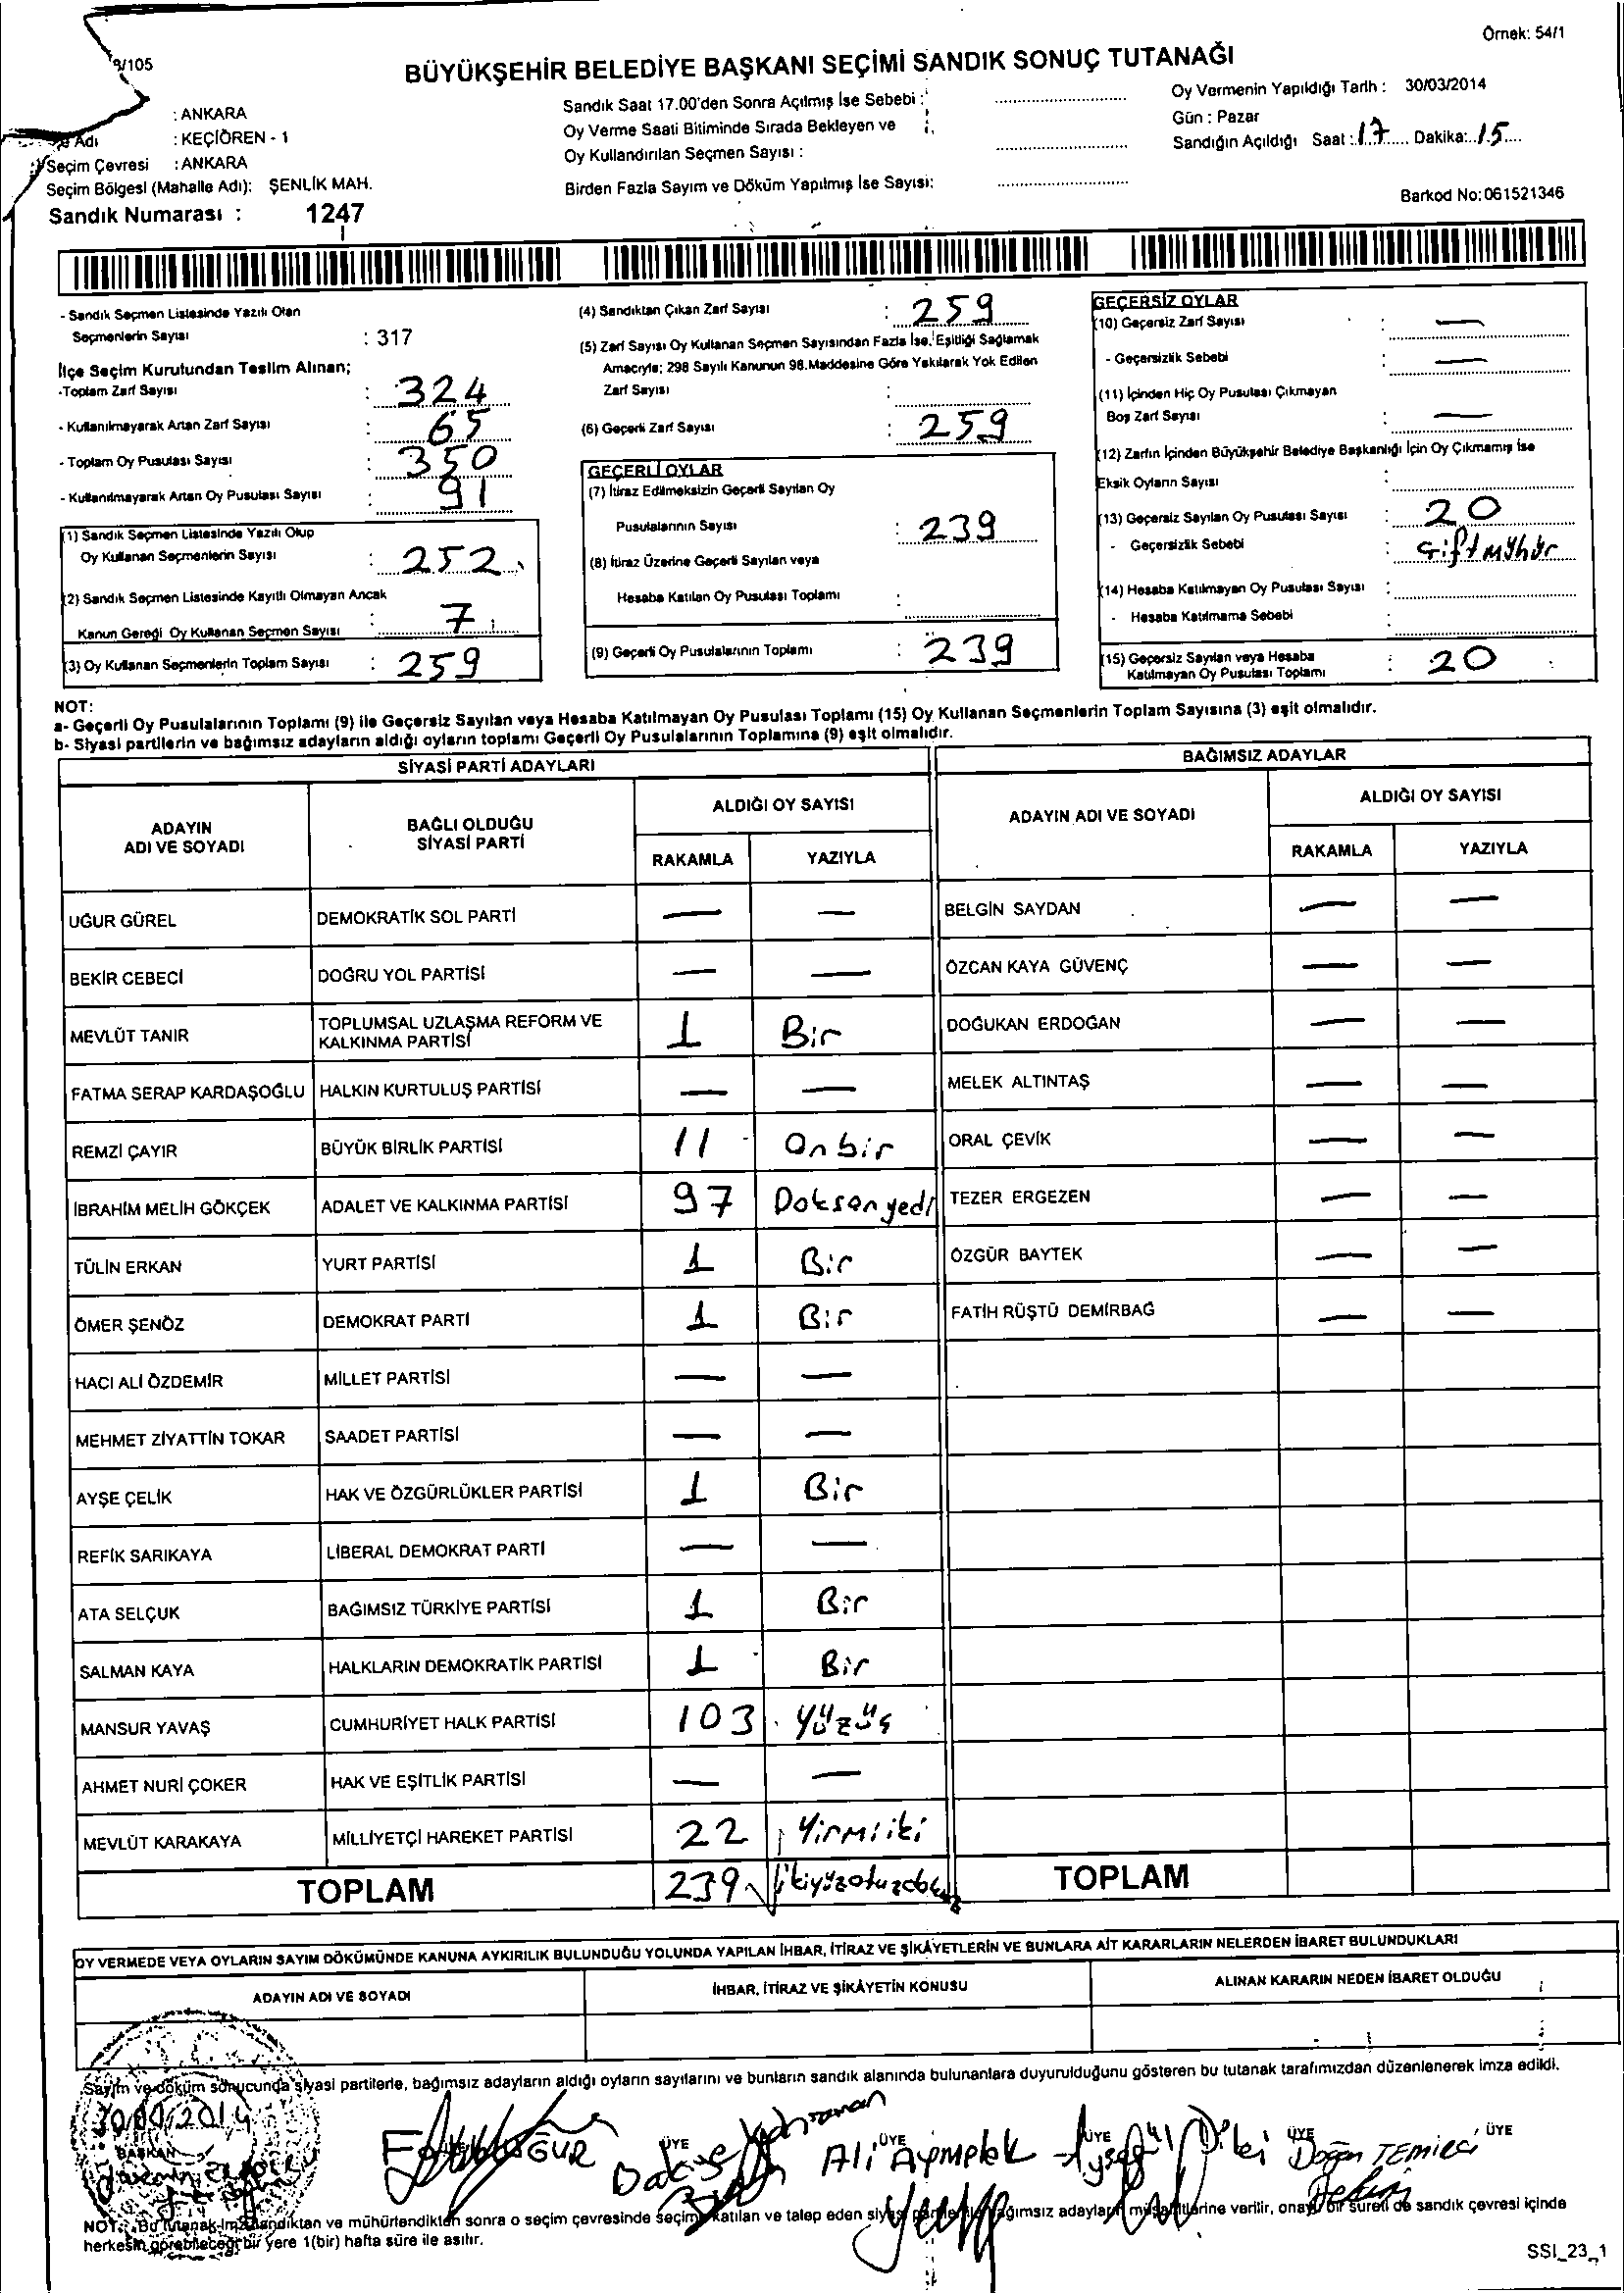 Örnek: 54/1
/105
BÜYÜKŞEHİR BELEDİYE BAŞKANI SEÇİMİ SANDIK SONUÇ TUTANAĞI
: ANKARA
Adı : KEÇİÖREN - 1
Seçim Çevresi : ANKARA
Seçim Bölgesi (Mahalle Adı): ŞENLİK MAH.
Sandık Numarası : 1247
Sandık Saat 17.00'den Sonra Açılmış İse Sebebi :
Oy Verme Saati Bitiminde Sırada Bekleyen ve
Oy Kullandırılan Seçmen Sayısı :
Birden Fazla Sayım ve Döküm Yapılmış İse Sayısı:
Oy Vermenin Yapıldığı Tarih : 30/03/2014
Gün : Pazar
Sandığın Açıldığı Saat : 17 Dakika: 15
Barkod No: 061521346
- Sandık Seçmen Listesinde Yazılı Olan
Seçmenlerin Sayısı : 317
İlçe Seçim Kurulundan Teslim Alınan;
-Toplam Zarf Sayısı : 324
- Kullanılmayarak Artan Zarf Sayısı : 65
- Toplam Oy Pusulası Sayısı : 350
- Kullanılmayarak Artan Oy Pusulası Sayısı : 91
(1) Sandık Seçmen Listesinde Yazılı Olup
Oy Kullanan Seçmenlerin Sayısı : 252
(2) Sandık Seçmen Listesinde Kayıtlı Olmayan Ancak
Kanun Gereği Oy Kullanan Seçmen Sayısı : 7
(3) Oy Kullanan Seçmenlerin Toplam Sayısı : 259
(4) Sandıktan Çıkan Zarf Sayısı : 259
(5) Zarf Sayısı Oy Kullanan Seçmen Sayısından Fazla İse, Eşitliği Sağlamak
Amacıyla; 298 Sayılı Kanunun 98.Maddesine Göre Yakılarak Yok Edilen
Zarf Sayısı :
(6) Geçerli Zarf Sayısı : 259
GEÇERLİ OYLAR
(7) İtiraz Edilmeksizin Geçerli Sayılan Oy
Pusulalarının Sayısı : 239
(8) İtiraz Üzerine Geçerli Sayılan veya
Hesaba Katılan Oy Pusulası Toplamı :
(9) Geçerli Oy Pusulalarının Toplamı : 239
GEÇERSİZ OYLAR
(10) Geçersiz Zarf Sayısı : —
- Geçersizlik Sebebi : —
(11) İçinden Hiç Oy Pusulası Çıkmayan
Boş Zarf Sayısı : —
(12) Zarfın İçinden Büyükşehir Belediye Başkanlığı İçin Oy Çıkmamış İse
Eksik Oyların Sayısı :
(13) Geçersiz Sayılan Oy Pusulası Sayısı : 20
- Geçersizlik Sebebi : Çift Mühür
(14) Hesaba Katılmayan Oy Pusulası Sayısı :
- Hesaba Katılmama Sebebi :
(15) Geçersiz Sayılan veya Hesaba
Katılmayan Oy Pusulası Toplamı : 20
NOT:
a- Geçerli Oy Pusulalarının Toplamı (9) ile Geçersiz Sayılan veya Hesaba Katılmayan Oy Pusulası Toplamı (15) Oy Kullanan Seçmenlerin Toplam Sayısına (3) eşit olmalıdır.
b- Siyasi partilerin ve bağımsız adayların aldığı oyların toplamı Geçerli Oy Pusulalarının Toplamına (9) eşit olmalıdır.
SİYASİ PARTİ ADAYLARI BAĞIMSIZ ADAYLAR
ADAYIN ADI VE SOYADI
BAĞLI OLDUĞU SİYASİ PARTİ
ALDIĞI OY SAYISI
RAKAMLA YAZIYLA
ADAYIN ADI VE SOYADI
ALDIĞI OY SAYISI
RAKAMLA YAZIYLA
UĞUR GÜREL DEMOKRATİK SOL PARTİ — — BELGİN SAYDAN — —
BEKİR CEBECİ DOĞRU YOL PARTİSİ — — ÖZCAN KAYA GÜVENÇ — —
MEVLÜT TANIR TOPLUMSAL UZLAŞMA REFORM VE KALKINMA PARTİSİ 1 Bir DOĞUKAN ERDOĞAN — —
FATMA SERAP KARDAŞOĞLU HALKIN KURTULUŞ PARTİSİ — — MELEK ALTINTAŞ — —
REMZİ ÇAYIR BÜYÜK BİRLİK PARTİSİ 11 Onbir ORAL ÇEVİK — —
İBRAHİM MELİH GÖKÇEK ADALET VE KALKINMA PARTİSİ 97 Doksanyedi TEZER ERGEZEN — —
TÜLİN ERKAN YURT PARTİSİ 1 Bir ÖZGÜR BAYTEK — —
ÖMER ŞENÖZ DEMOKRAT PARTİ 1 Bir FATİH RÜŞTÜ DEMİRBAĞ — —
HACI ALİ ÖZDEMİR MİLLET PARTİSİ — —
MEHMET ZİYATTİN TOKAR SAADET PARTİSİ — —
AYŞE ÇELİK HAK VE ÖZGÜRLÜKLER PARTİSİ 1 Bir
REFİK SARIKAYA LİBERAL DEMOKRAT PARTİ — —
ATA SELÇUK BAĞIMSIZ TÜRKİYE PARTİSİ 1 Bir
SALMAN KAYA HALKLARIN DEMOKRATİK PARTİSİ 1 Bir
MANSUR YAVAŞ CUMHURİYET HALK PARTİSİ 103 yüzüç
AHMET NURİ ÇOKER HAK VE EŞİTLİK PARTİSİ — —
MEVLÜT KARAKAYA MİLLİYETÇİ HAREKET PARTİSİ 22 Yirmiiki
TOPLAM 239 ikiyüzotuzdokuz TOPLAM
OY VERMEDE VEYA OYLARIN SAYIM DÖKÜMÜNDE KANUNA AYKIRILIK BULUNDUĞU YOLUNDA YAPILAN İHBAR, İTİRAZ VE ŞİKÂYETLERİN VE BUNLARA AİT KARARLARIN NELERDEN İBARET BULUNDUKLARI
ADAYIN ADI VE SOYADI İHBAR, İTİRAZ VE ŞİKÂYETİN KONUSU ALINAN KARARIN NEDEN İBARET OLDUĞU
Sayım ve döküm sonucunda siyasi partilerle, bağımsız adayların aldığı oyların sayılarını ve bunların sandık alanında bulunanlara duyurulduğunu gösteren bu tutanak tarafımızdan düzenlenerek imza edildi.
BAŞKAN ÜYE ÜYE ÜYE ÜYE ÜYE
Ali Doğan TEMİRCİ
NOT: Bu tutanak imzalandıktan ve mühürlendikten sonra o seçim çevresinde seçime katılan ve talep eden siyasi partilerle bağımsız adayların müşahitlerine verilir, onaylı bir sureti de sandık çevresi içinde
herkesin görebileceği bir yere 1(bir) hafta süre ile asılır.
SSI_23_1